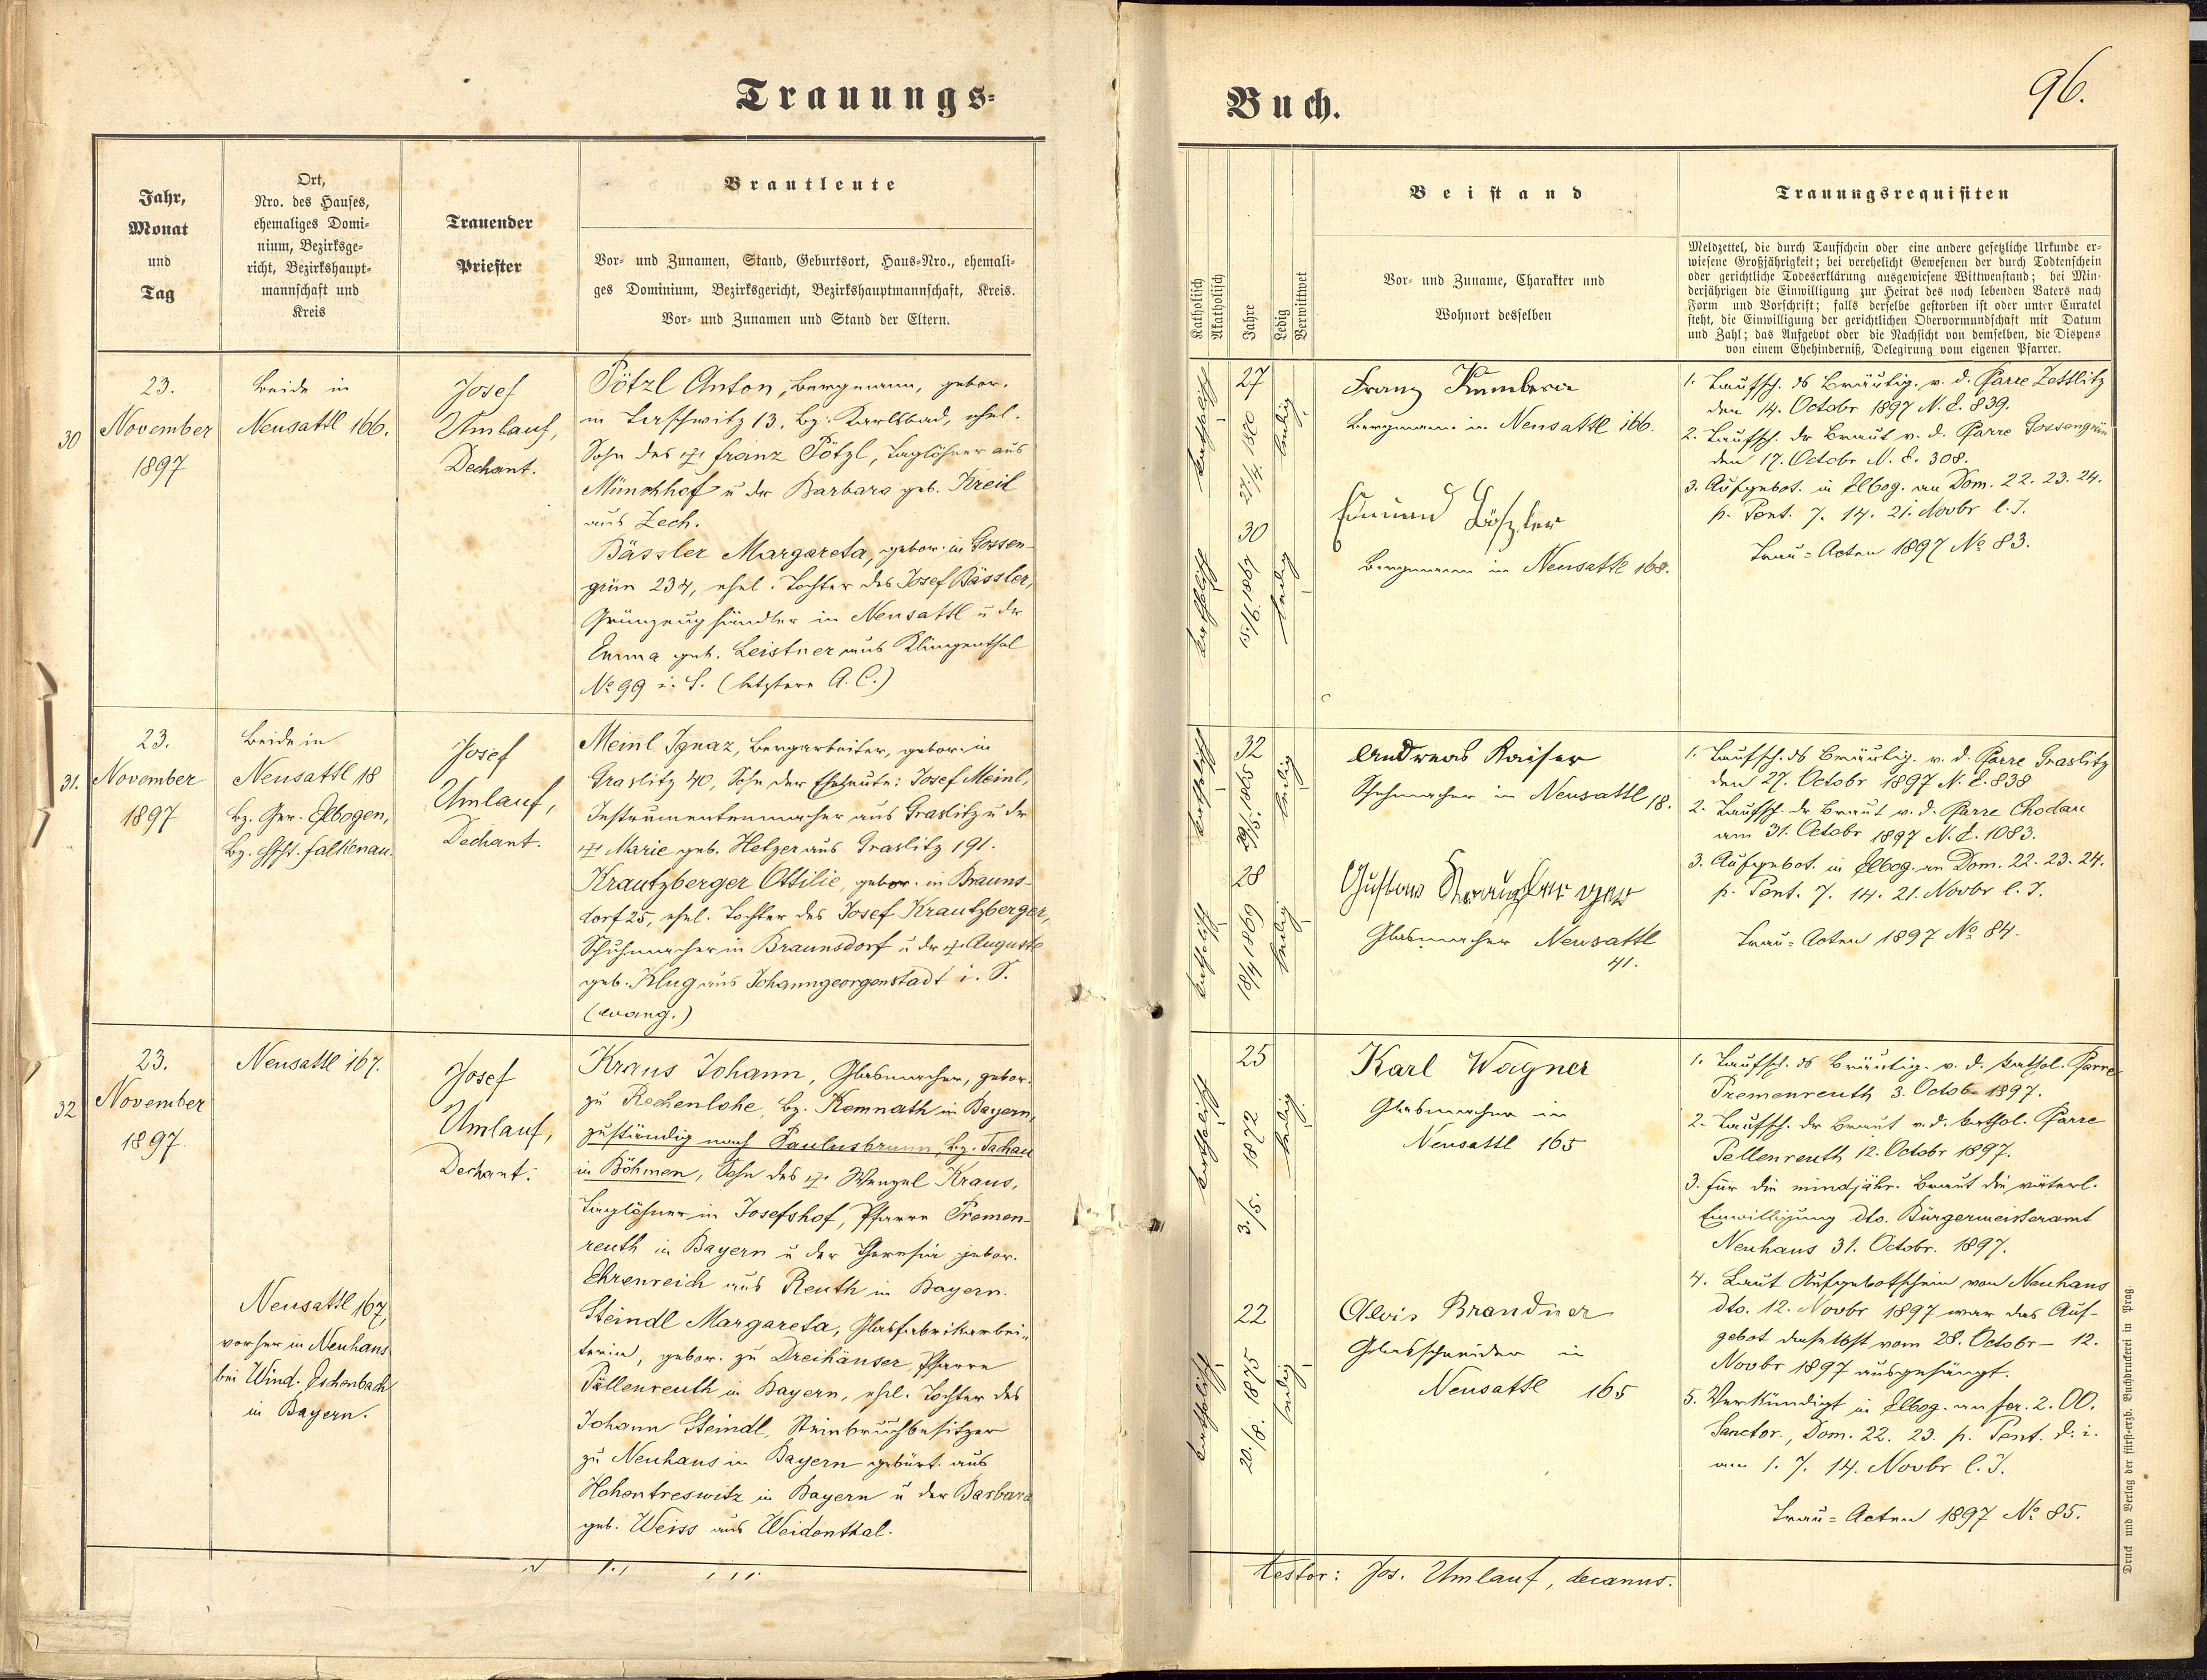 Trauungs-
Buch.
96.
Jahr,
Monat
und
Tag
Ort,
Nro. des Hauses,
ehemaliges Domi-
nium, Bezirksge-
richt, Bezirkshaupt-
mannschaft und
Kreis
Trauender
Priester
Brautleute
Vor- und Zunamen, Stand, Geburtsort, Haus-Nro., ehemali-
ges Dominium, Bezirksgericht, Bezirkshauptmannschaft, Kreis.
Vor- und Zunamen und Stand der Eltern.
Katholisch
Akatholisch
Jahre
Ledig
Verwittwet
Beistand
Vor- und Zuname, Charakter und
Wohnort desselben
Trauungsrequisiten
Meldzettel, die durch Taufschein oder eine andere gesetzliche Urkunde er-
wiesene Großjährigkeit; bei verehelicht Gewesenen der durch Todtenschein
oder gerichtliche Todeserklärung ausgewiesene Wittwenstand; bei Min-
derjährigen die Einwilligung zur Heirat des noch lebenden Vaters nach
Form und Vorschrift; falls derselbe gestorben ist oder unter Curatel
steht, die Einwilligung der gerichtlichen Obervormundschaft mit Datum
und Zahl; das Aufgebot oder die Nachsicht von demselben, die Dispens
von einem Ehehinderniß, Delegirung vom eigenen Pfarrer.
30
23.
November
1897
beide in
Neusattl 166.
Josef
Umlauf,
Dechant.
Pötzl Anton, Bergmann, gebor.
in Taschwitz 13. Bz. Karlsbad, ehel.
Sohn des † Franz Pötzl, Taglöhner aus
Münchhof u der Barbara geb. Kreil
aus Zech.
Bässler Margareta, gebor. in Gossen-
grün 234, ehel. Tochter des Josef Bässler,
Grünzeughändler in Neusattl u dr
Emma geb. Leistner aus Klingenthal
No 99 i. S. (letztere A. C.)
katholisch
27
27/4. 1870
ledig
katholisch
30
15/6. 1867
ledig
Franz
Bergmann in Neusattl 166.
Bergmann in Neusattl 168.
1. Taufsch. ds Bräutig. v. d. Pfarre Zettlitz
den 14. Octobr 1897 N. E. 839.
2. Taufsch. dr Braut v. d. Pfarre Gossengrün
den 17. Octobr N. E. 308.
3. Aufgebot. in Elbog. an Dom. 22. 23. 24.
p. Pent. 7. 14. 21. Novbr l. J.
Trau-Acten 1897 No 83.
31.
23.
November
1897
beide in
Neusattl 18
Bz. Ger. Elbogen,
Bz. Hptsch. Falkenau.
Josef
Umlauf,
Dechant.
Meinl Ignaz, Bergarbeiter, gebor. in
Graslitz 40, Sohn der Eheleute: Josef Meinl,
Instrumentenmacher aus Graslitz u dr
† Marie geb. Hetzer aus Graslitz 191.
Krautzberger Ottilie, gebor. in Brauns-
dorf 25, ehel. Tochter des Josef Krautzberger,
Schuhmacher in Braunsdorf u dr † Auguste
geb. Klug aus Johanngeorgenstadt i. S.
(evang.)
katholisch
32
29/5. 1865
ledig
katholisch
28
18/4 1869
ledig
Andreas Kaiser
Schuhmacher in Neusattl 18.
Gustav Krauzberger
Glasmacher Neusattl
41.
1. Taufsch. ds Bräutig. v. d. Pfarre Graslitz
den 27. Octobr 1897 N. E. 838
2. Taufsch. dr Braut v. d. Pfarre Chodau
am 31. Octobr 1897 N. E. 1083.
3. Aufgebot. in Elbog. an Dom. 22. 23. 24.
p. Pent. 7. 14. 21. Novbr l. J.
Trau-Acten 1897 No 84.
32
23.
November
1897
Neusattl 167.
Neusattl 167,
vorher in Neuhaus
bei Wind. Eshenbach
in Bayern.
Josef
Umlauf,
Dechant.
Kraus Johann, Glasmacher, gebor.
zu Rechenlohe, Bz. Kemnath in Bayern,
zuständig nach Paulusbrunn, Bz. Tachau
in Böhmen, Sohn des † Wenzel Kraus,
Taglöhner in Josefshof, Pfarre Premen-
reuth in Bayern u der Theresia gebor.
Ehrenreich aus Reuth in Bayern.
Steindl Margareta, Glasfabrikarbei-
terin, gebor. zu Dreihäuser, Pfarre
Püllenreuth in Bayern, ehel. Tochter des
Johann Steindl, Steinbruchbesitzer
zu Neuhaus in Bayern gebürt. aus
Hohentreswitz in Bayern u der Barbara
geb. Weiss aus Weidenthal.
katholisch
25
3/5. 1872
ledig
katholisch
22
20./8. 1875
ledig
Karl Wagner
Glasmacher in
Neusattl 165
Alois Brandner
Glasschneider in
Neusattl 165
1. Taufsch. ds Bräutig. v. d. kathol. Pfarre
Premenreuth 3. Octob. 1897.
2. Taufsch. dr Braut v. d. kathol. Pfarre
Pellenreuth 12. Octobr 1897.
3. Für die mindjähr. Braut die väterl.
Einwilligung dto. Bürgermeisteramt
Neuhaus 31. Octobr. 1897.
4. Laut Aufgebotschein von Neuhaus
dto. 12. Novbr 1897 war das Auf-
gebot daselbst vom 28. Octobr - 12.
Novbr 1897 ausgehängt.
5. Verkündigt in Elbog. an fer. 2. OO.
Sanctor., Dom. 22. 23. p. Pent. d. i.
am 1. 7. 14. Novbr l. J.
Trau-Acten 1897 No 85.
testor: Jos. Umlauf, decanus.
Druck und Verlag der fürst-erzb. Buchdruckerei in Prag.